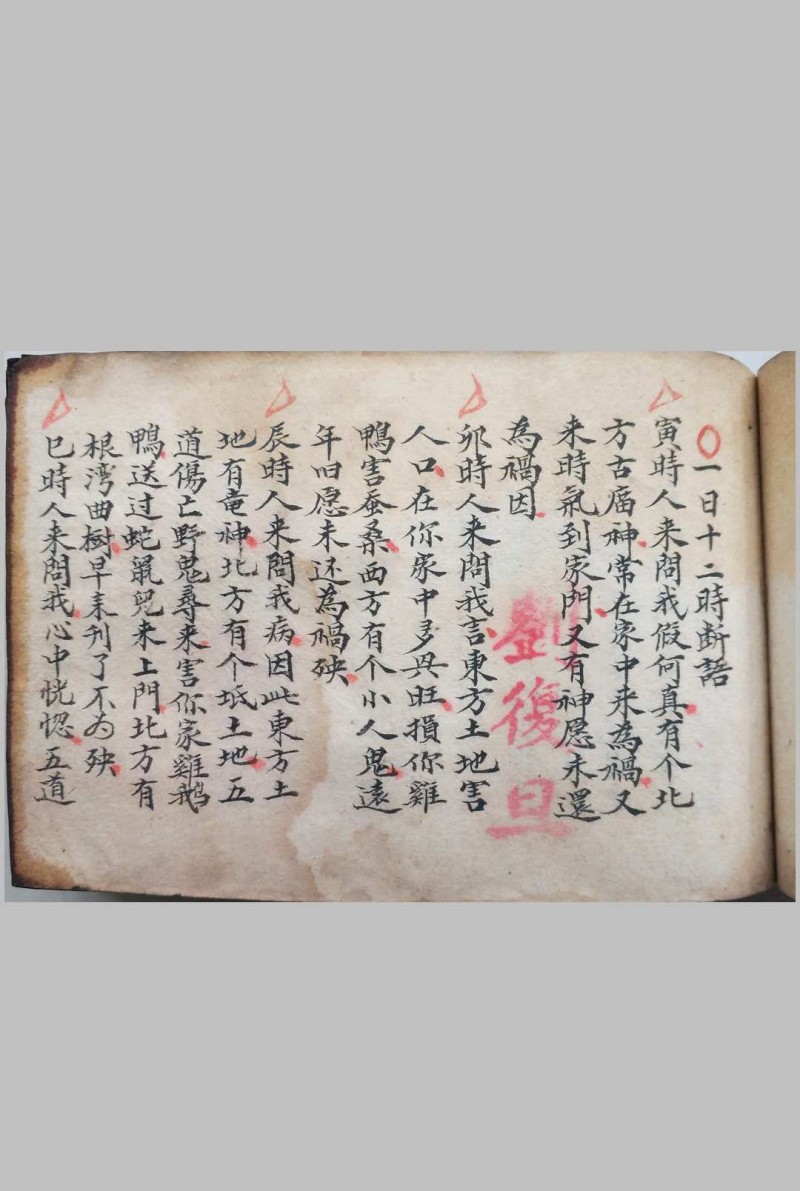 一日十二時断語
寅時人来問我假何真有个北
方古庙神常在家中来為禍又
来時氣到家門又有神愿未還
為禍因
卯時人来問我言東方土地害
人口在你家中多興旺損你雞
鴨害蚕桑西方有个小人鬼遠
年旧愿未还為禍殃
辰時人来問我病因此東方土
地有竜神北方有个坻土地五
道傷亡野鬼尋来害你家雞鹅
鴨送过蛇鼠兒来上門北方有
根湾曲樹早来刊了不为殃
巳時人来問我心中恍惚五道
劉復旦